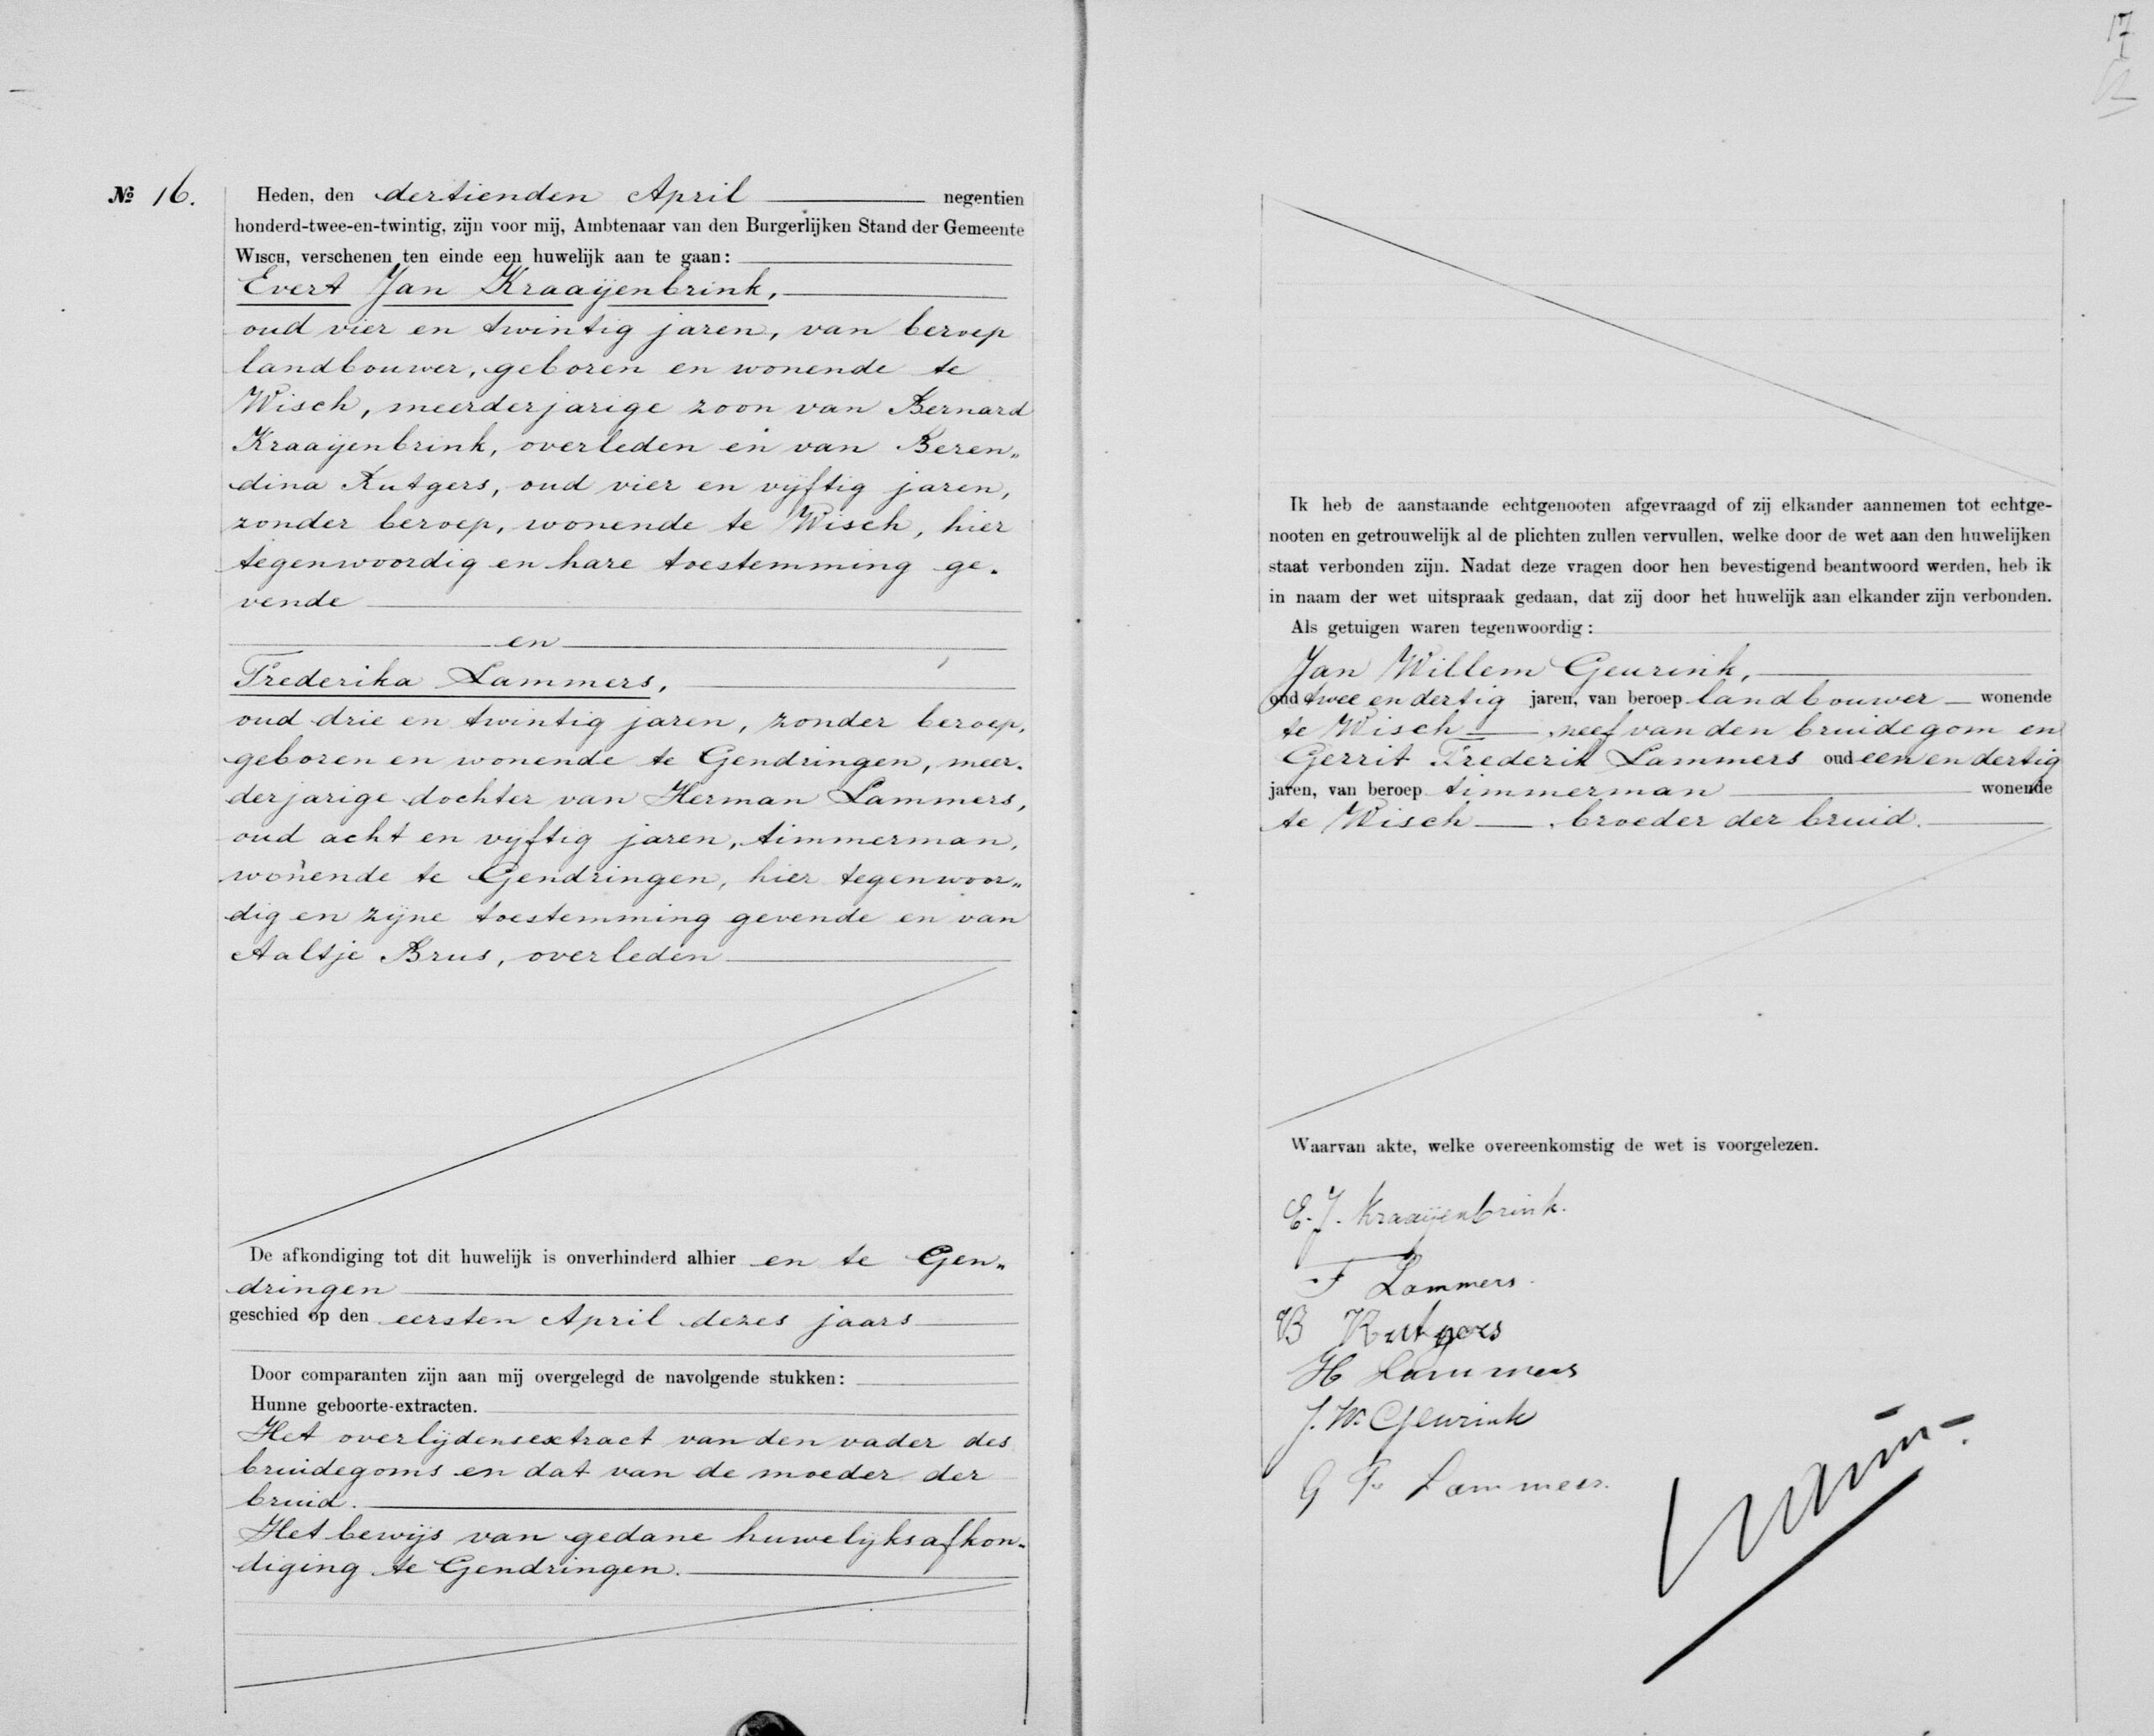 № 16. Heden, den dertienden April negentien
honderd-twee-en-twintig, zijn voor mij, Ambtenaar van den Burgerlijken Stand der Gemeente
Wisch, verschenen ten einde een huwelijk aan te gaan:
Evert Jan Kraaijenbrink,
oud vier en twintig jaren, van beroep
landbouwer, geboren en wonende te
Wisch, meerderjarige zoon van Bernard
Kraaijenbrink, overleden en van Beren„
dina Rutgers, oud vier en vijftig jaren,
zonder beroep, wonende te Wisch, hier
tegenwoordig en hare toestemming ge-
vende
en
Frederika Lammers,
oud drie en twintig jaren, zonder beroep,
geboren en wonende te Gendringen, meer-
derjarige dochter van Herman Lammers,
oud acht en vijftig jaren, timmerman,
wonende te Gendringen, hier tegenwoor„
dig en zijne toestemming gevende en van
Aaltje Brus, overleden
De afkondiging tot dit huwelijk is onverhinderd alhier en te Gen„
dringen
geschied op den eersten April dezes jaars
Door comparanten zijn aan mij overgelegd de navolgende stukken:
Hunne geboorte-extracten.
Het overlijdensextract van den vader des
bruidegoms en dat van de moeder der
bruid.
Het bewijs van gedane huwelijksafkon-
diging te Gendringen.
17
Ik heb de aanstaande echtgenooten afgevraagd of zij elkander aannemen tot echtge-
nooten en getrouwelijk al de plichten zullen vervullen, welke door de wet aan den huwelijken
staat verbonden zijn. Nadat deze vragen door hen bevestigend beantwoord werden, heb ik
in naam der wet uitspraak gedaan, dat zij door het huwelijk aan elkander zijn verbonden.
Als getuigen waren tegenwoordig:
Jan Willem Geurink,
oud twee en dertig jaren, van beroep landbouwer wonende
te Wisch, neef van den bruidegom en
Gerrit Frederik Lammers oud een en dertig
jaren, van beroep timmerman wonende
te Wisch, broeder der bruid.
Waarvan akte, welke overeenkomstig de wet is voorgelezen.
E. J. Kraaijenbrink.
F Lammers.
B Rutgers
H Lammers
J. W. Geurink
G F. Lammers.